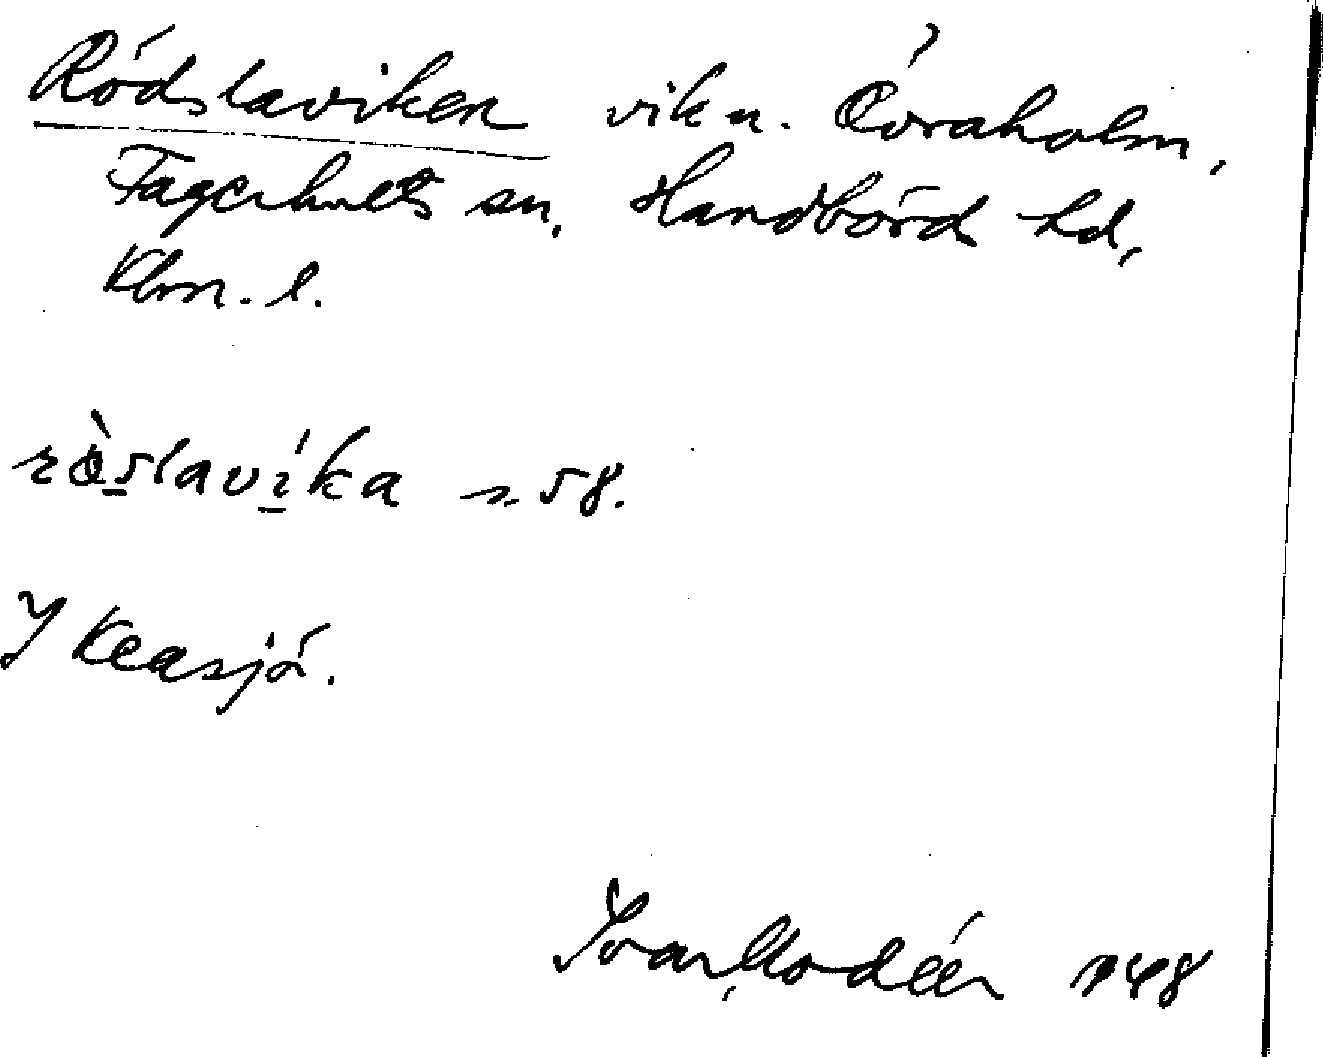 Rödslaviken vik n. Öraholm,
Fagerhults sn, Handbörds hd,
Klm. l.
rö̀slavíka n 58.
I Kleasjö.
Ivar Modéer 1948